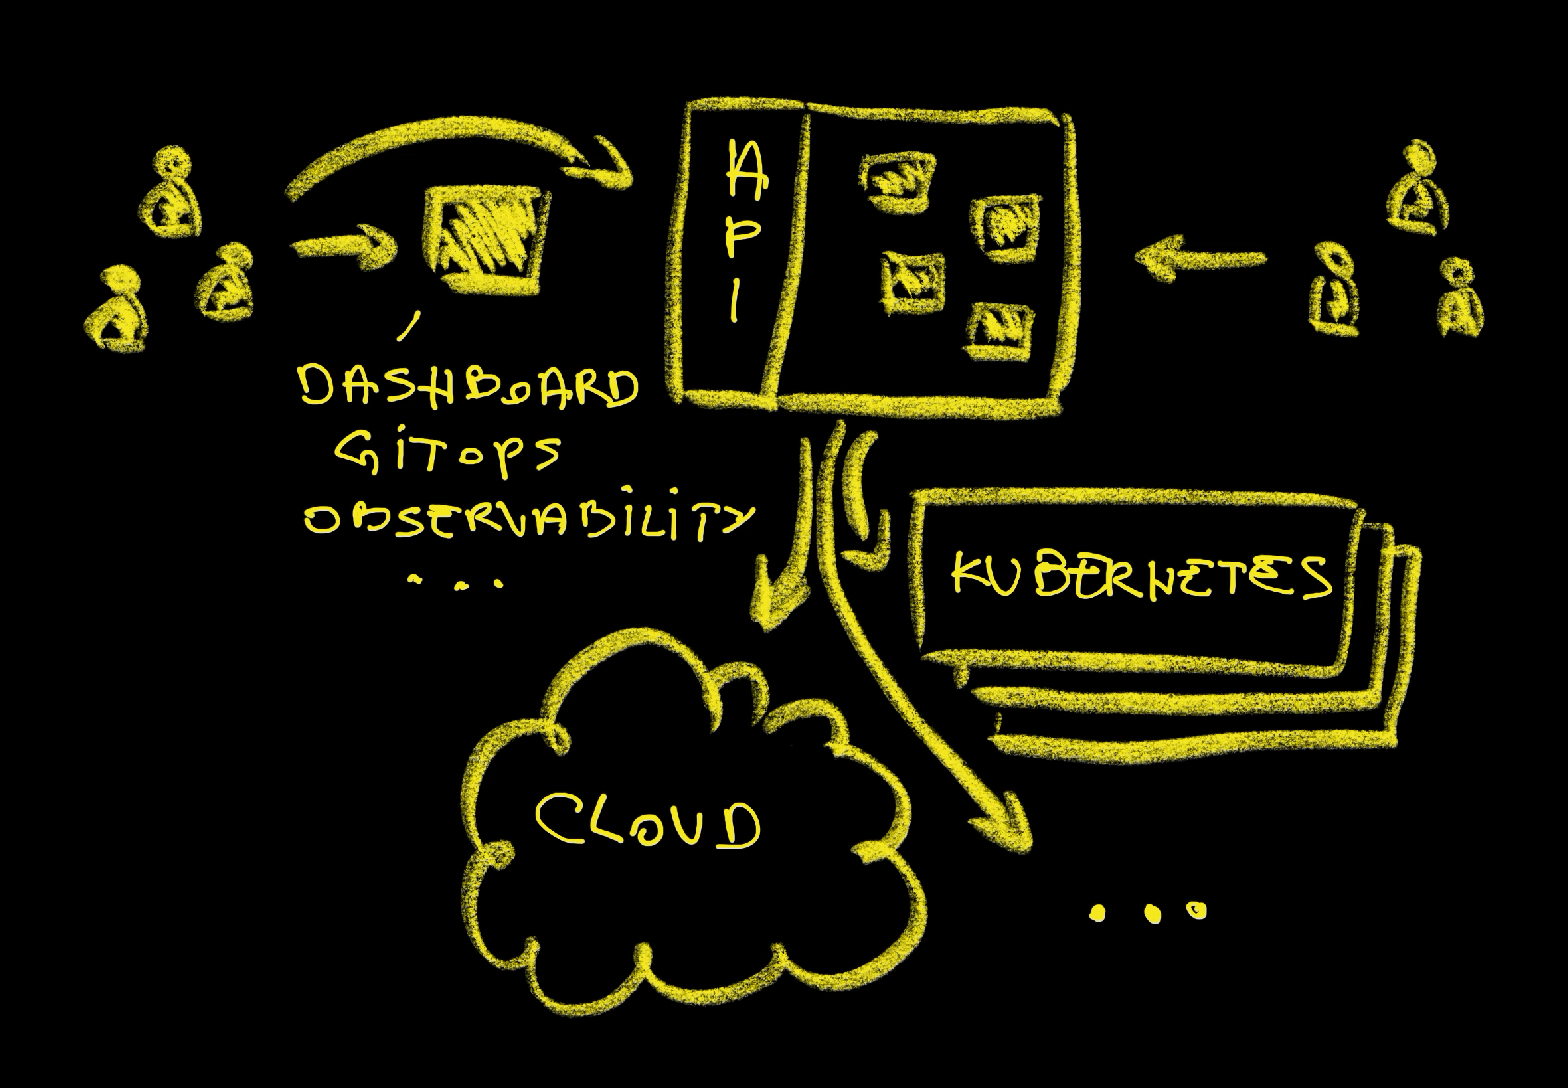 API
DASHBOARD
GITOPS
OBSERVABILITY
...
KUBERNETES
CLOUD
...